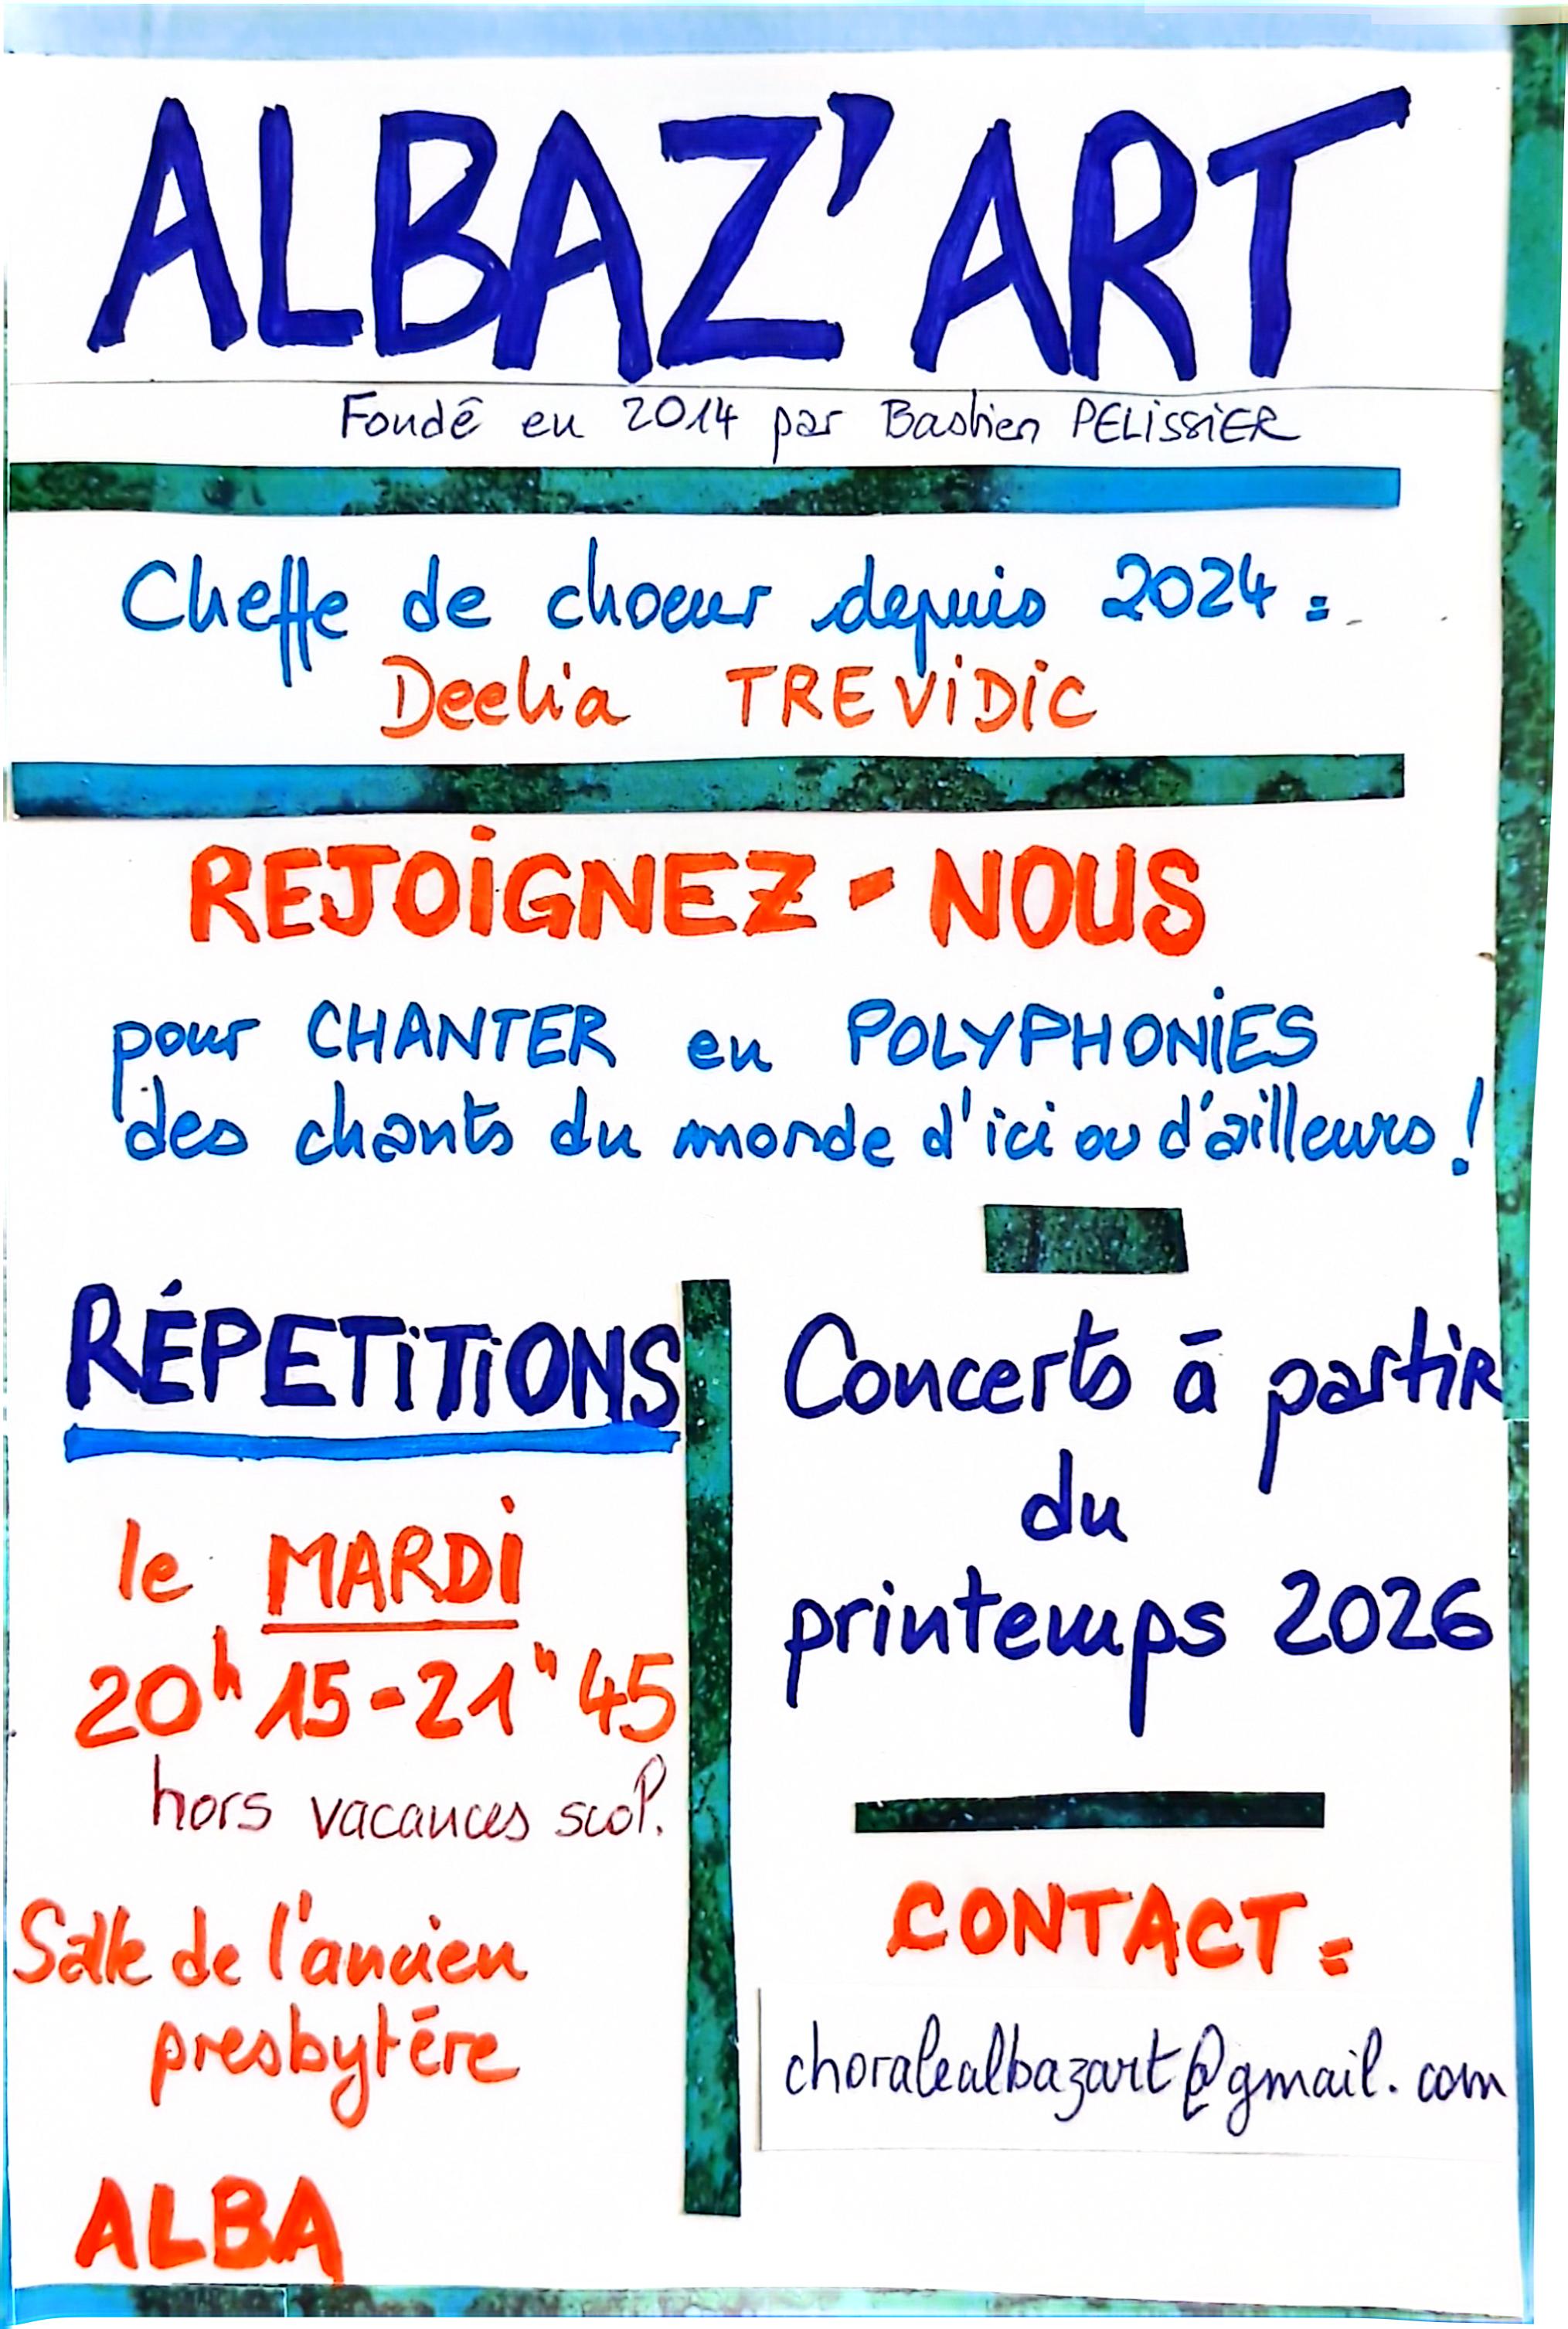 ALBAZ'ART
Fondé en 2014 par Bastien PELISSIER
Cheffe de choeur depuis 2024 :
Deelia TREVIDIC
REJOIGNEZ-NOUS
pour CHANTER en POLYPHONIES
des chants du monde d'ici ou d'ailleurs !
RÉPETITIONS
le MARDI
20h15-21h45
hors vacances scol.
Salle de l'ancien
presbytère
ALBA
Concerts à partir
du
printemps 2026
CONTACT :
choralealbazart@gmail.com